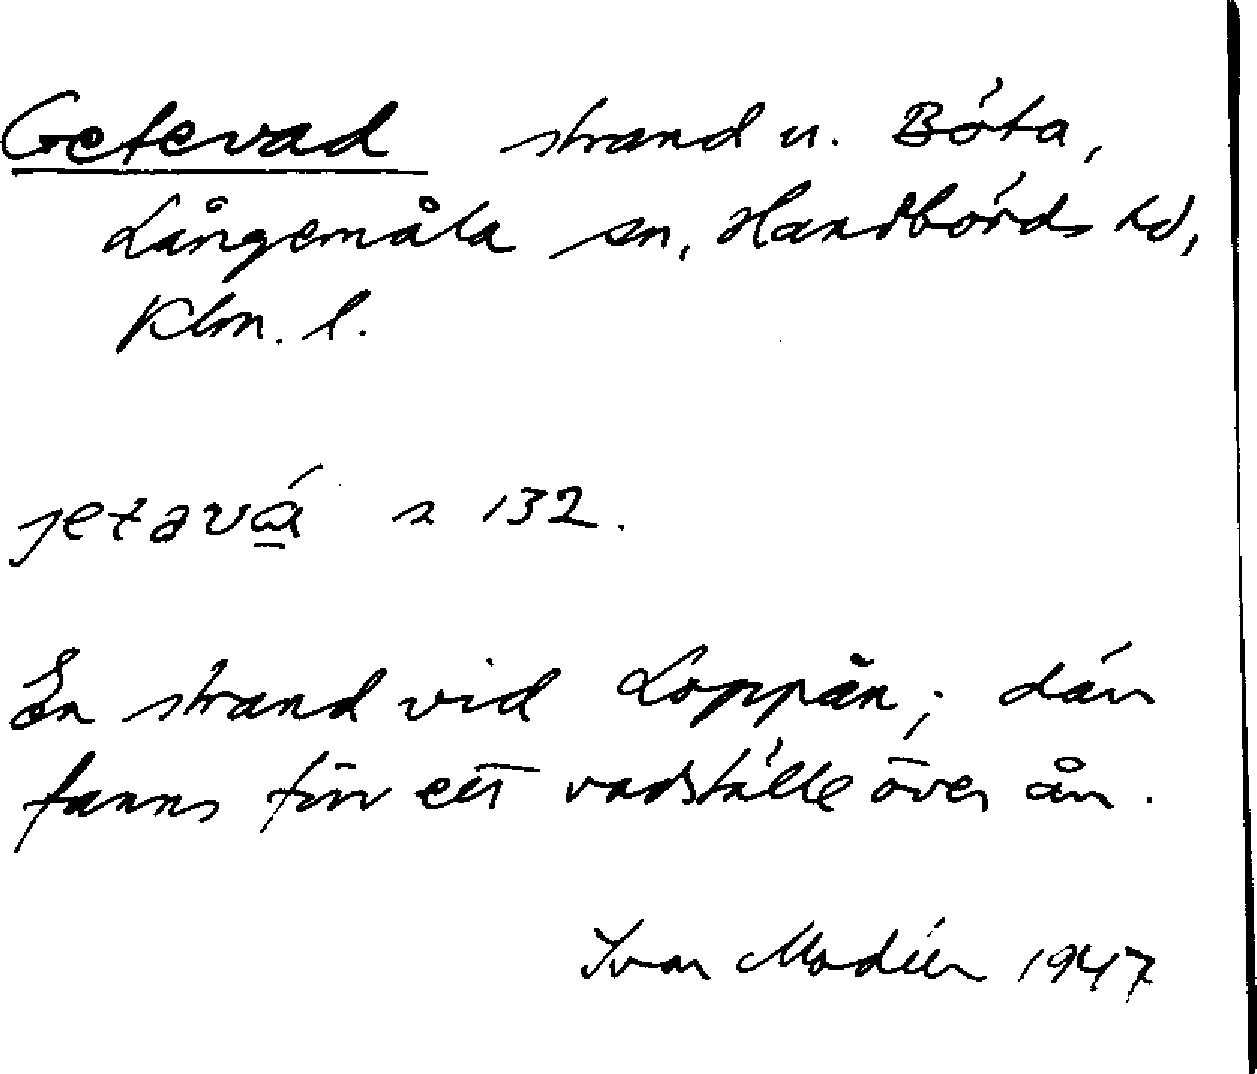 Getevad strand u. Böta,
Långemåla sn, Handbörds hd,
Klm. l.
jetavá 132.
En strand vid Loppån; där
fanns förr ett vadställe över ån.
Ivar Modéer 1947